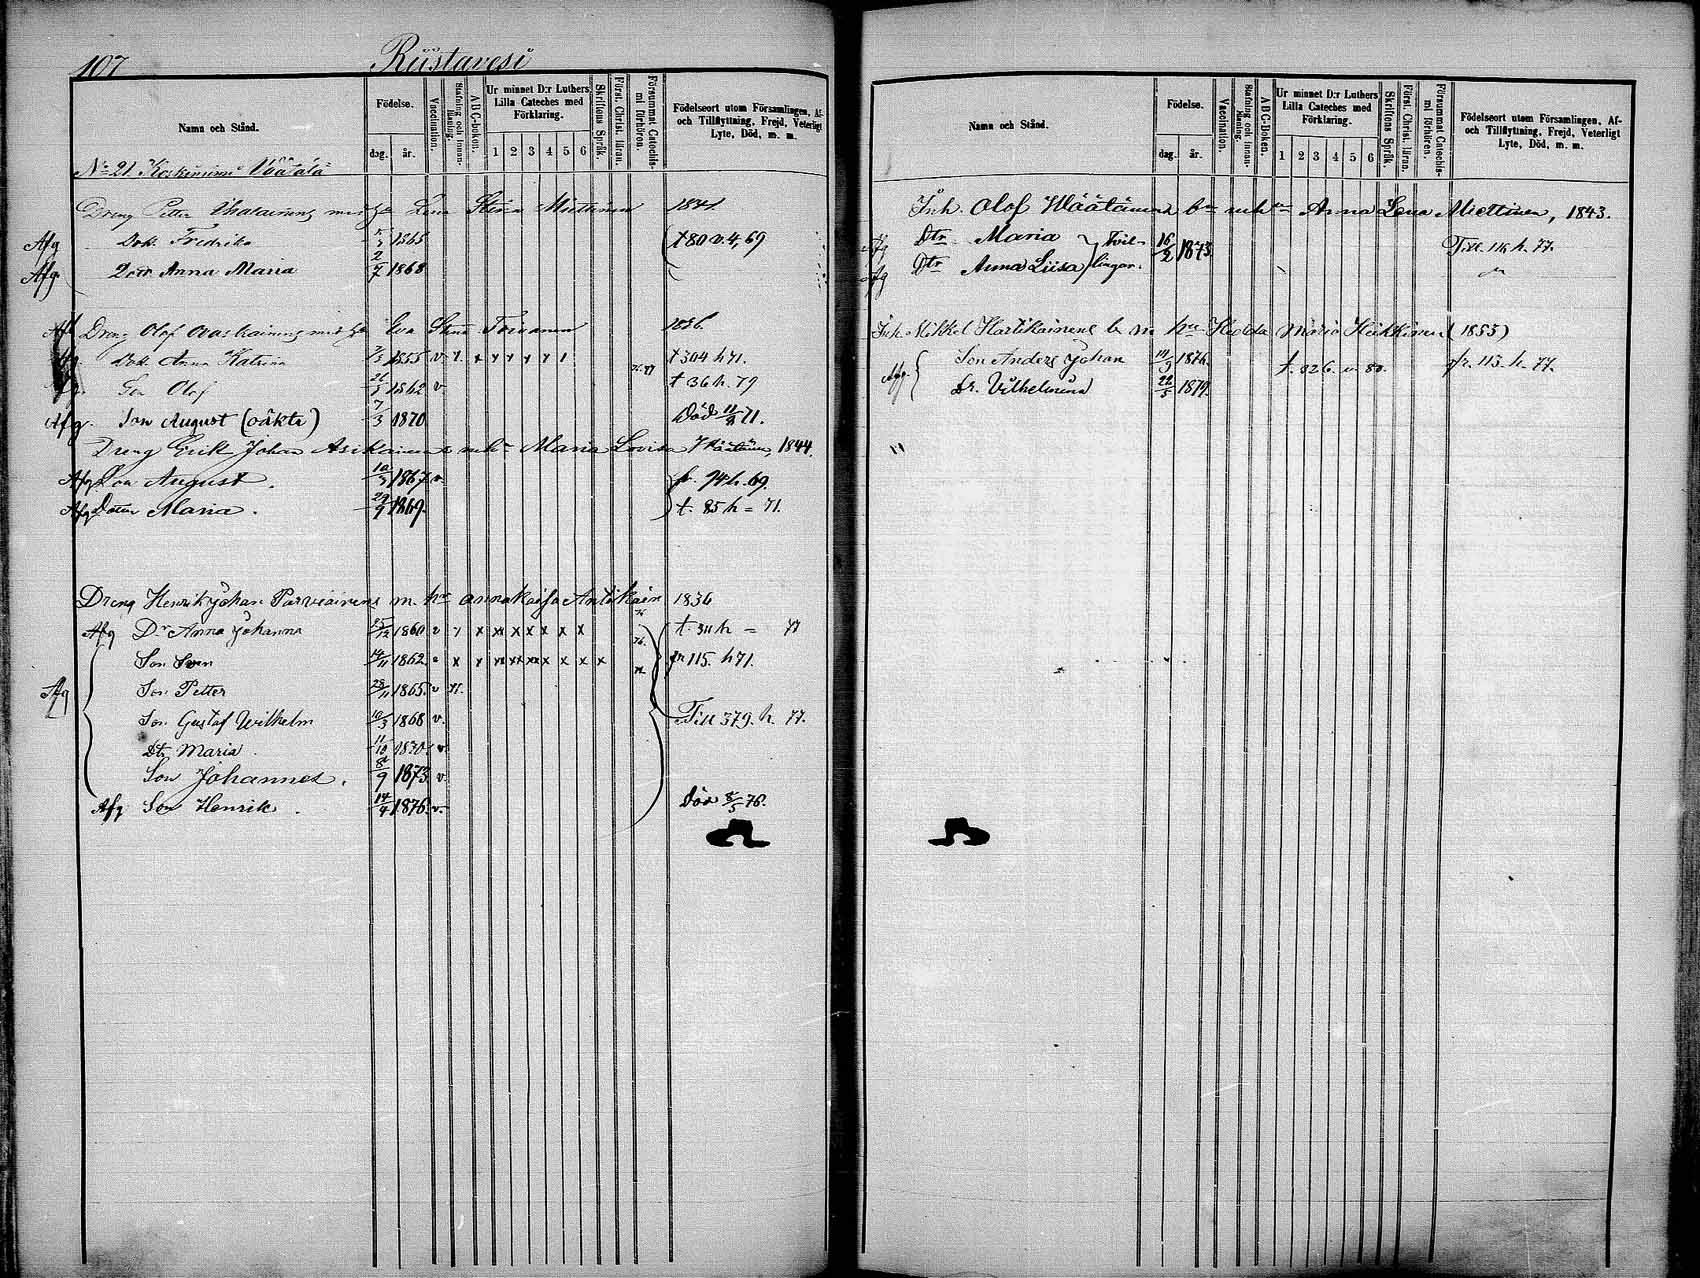 107 Riistavesi
Namn och Stånd.
Födelse.
dag. år.
Vaccination.
Stafning och Innanläsning.
A B C-boken.
Ur minnet D:r Luthers Lilla Cateches med Förklaring.
1 2 3 4 5 6
Skriftens Språk.
Först. Christ. läran.
Försummat Catechismi förhören.
Födelseort utom Församlingen, Af- och Tillflyttning, Frejd, Veterligt Lyte, Död, m. m.
No 21 Koskiniemi Väätälä
Dreng Petter med Lena Stina Miettinen
Afg Dotr Fredrika 1865 80 v. 4, 69
Afg Dotr Anna Maria 2/7 1868
Afg Dreng Olof med Eva Stina Toivanen 1826.
Afg Dotr Anna Katrina 1855 v. x x x x x x 304 h 71.
Son Olof 1862 v t 36 h. 79
Afg. Son August (oäkta) 7/3 1870 Död 11/8 71.
Dreng Erik Johan Asikainen mhu Maria Lovisa 1844.
Afg Son August. 10/3 1867 v. fr. 94 h. 69.
Afg Dotter Maria. 29/9 1869. t. 85 h = 71.
Dreng Henrik Johan Parviainen m. hu Anna Kaisa Antikain 1836
Afg Dr Anna Johanna 25/12 1860 v x x x x x x x x t. 311 h = 77
Son Sven 14/11 1862 x x x x x x x x x fr 115. h 71.
Afg Son Petter 28/11 1865. v
Son Gustaf Wilhelm 10/3 1868 v. Till 379. h. 77.
Dtr Maria 11/10 1870. v
Son Johannes. 8/9 1873. v.
Afg Son Henrik. 14/4 1876. v. Död 8/5 76.
Namn och Stånd.
Födelse.
dag. år.
Vaccination.
Stafning och Innanläsning.
A B C-Boken.
Ur minnet D:r Luthers Lilla Cateches med Förklaring.
1 2 3 4 5 6
Skriftens Språk.
Först. Christ. läran.
Försummat Catechismi förhören.
Födelseort utom Församlingen, Af- och Tillflyttning, Frejd, Veterligt Lyte, Död, m. m.
Inh. Olof Väätäinen b m hu Anna Lena Miettinen, 1843.
Afg Dtr Maria } Tvil- 16/2 1873. Till. 116 h. 77.
Afg Dtr Anna Liisa } lingar.
Inh. Mikkel Hartikainen b. m hu Hedda Maria Heikkinen (1855)
Afg. { Son Anders Johan 1876. t. 326. v. 80. fr. 113. h. 77.
Dr. Vilhelmina 22/5 1879.